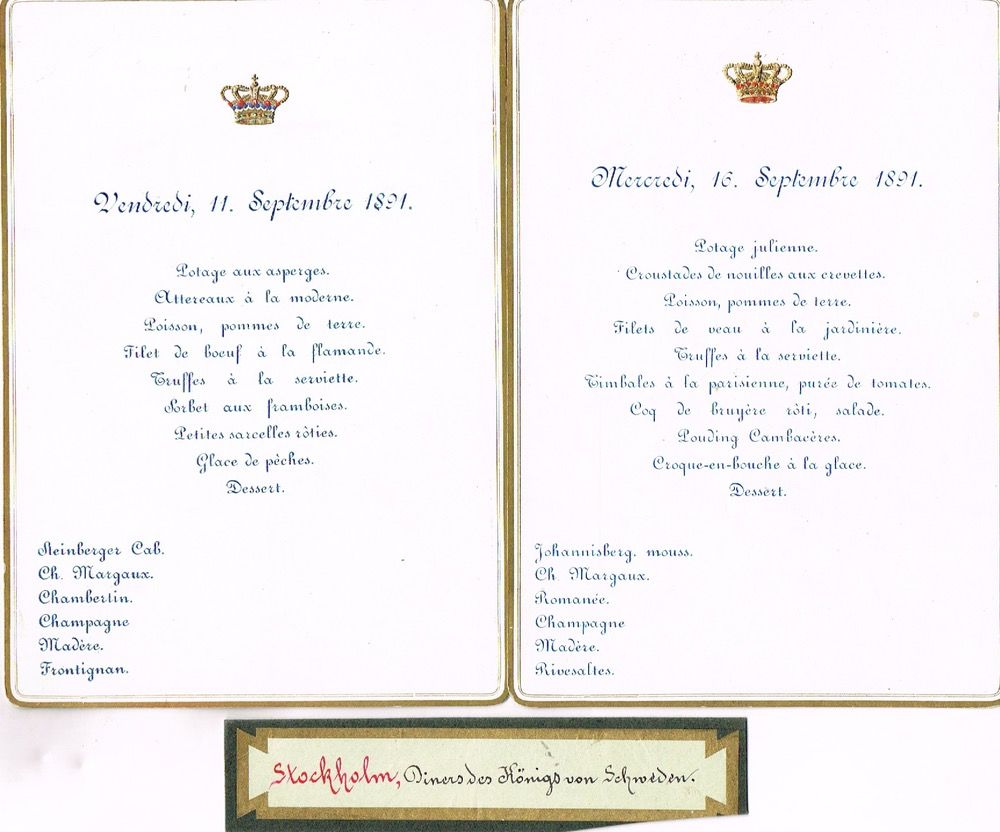 Vendredi, 11. Septembre 1891.
Potage aux asperges.
Attereaux à la moderne.
Poisson, pommes de terre.
Filet de boeuf à la flamande.
Truffes à la serviette.
Sorbet aux framboises.
Petites sarcelles rôties.
Glace de pêches.
Dessert.
Steinberger Cab.
Ch. Margaux.
Chambertin.
Champagne
Madère.
Frontignan.
Mercredi, 16. Septembre 1891.
Potage julienne.
Croustades de nouilles aux crevettes.
Poisson, pommes de terre.
Filets de veau à la jardinière.
Truffes à la serviette.
Timbales à la parisienne, purée de tomates.
Coq de bruyère rôti, salade.
Pouding Cambacères.
Croque-en-bouche à la glace.
Dessert.
Johannisberg. mouss.
Ch. Margaux.
Romanée.
Champagne
Madère.
Rivesaltes.
Stockholm, Diners des Königs von Schweden.